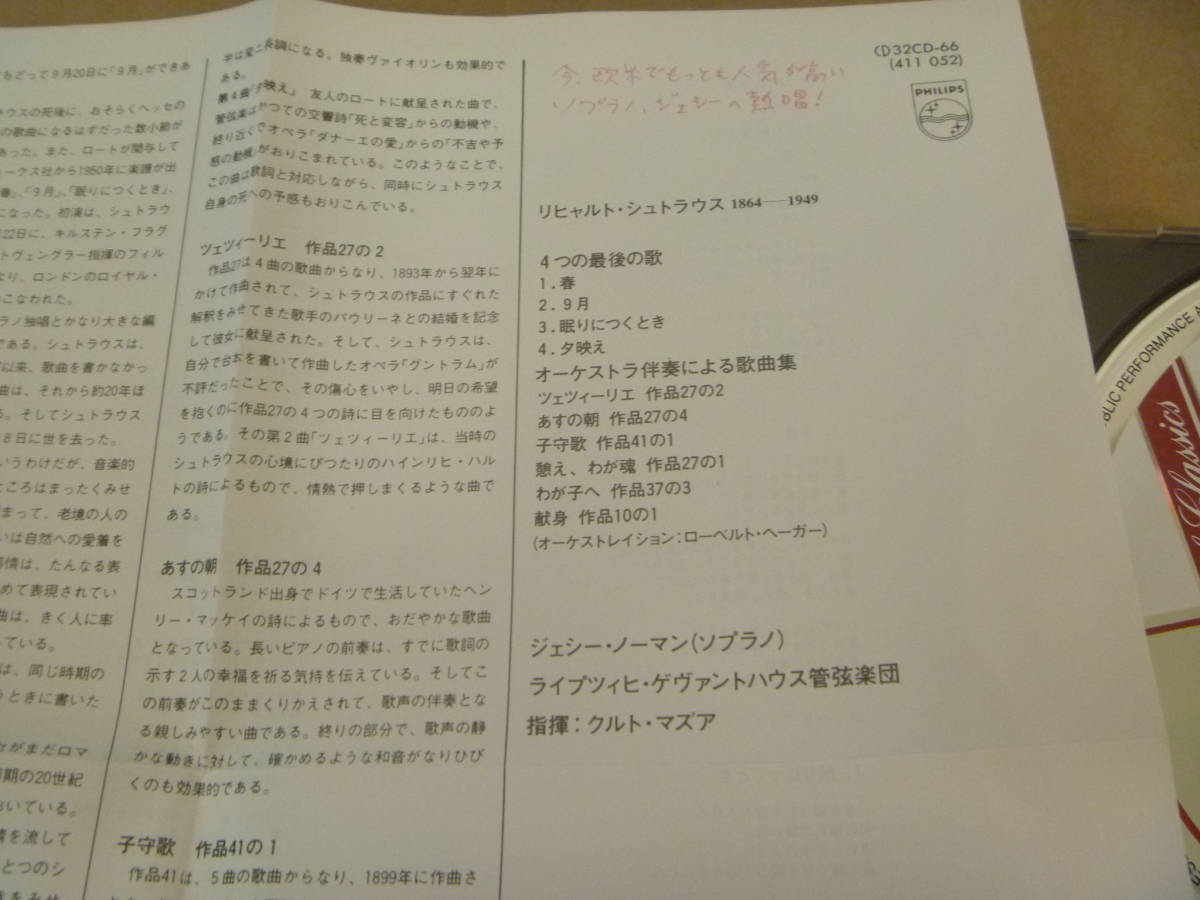 もどって9月20日に「9月」ができあ
ウスの死後に、おそらくヘッセの
の歌曲になるはずだった数小節が
あった。また、ロートが関与して
ークス社から1950年に楽譜が出
春」、「9月」、「眠りにつくとき」、
になった。初演は、シュトラウ
22日に、キルステン・フラグ
トヴェングラー指揮のフィル
より、ロンドンのロイヤル・
こなわれた。
ラノ独唱とかなり大きな編
である。シュトラウスは、
以来、歌曲を書かなかっ
曲は、それから約20年ほ
る。そしてシュトラウス
8日に世を去った。
いうわけだが、音楽的
ところはまったくみせ
まって、老境の人の
いは自然への愛着を
感情は、たんなる表
めて表現されてい
曲は、きく人に率
っている。
は、同じ時期の
うときに書いた
がまだロマ
期の20世紀
おいている。
情を流して
とつのシ
をみせ
学は変ニ長調になる。独奏ヴァイオリンも効果的で
ある。
第4曲「夕映え」 友人のロートに献呈された曲で、
管弦楽はかつての交響詩「死と変容」からの動機や、
終り近くでオペラ「ダナーエの愛」からの「不吉や予
感の動機」がおりこまれている。このようなことで、
この曲は歌詞と対応しながら、同時にシュトラウス
自身の死への予感もおりこんでいる。
ツェツィーリエ 作品27の2
作品27は4曲の歌曲からなり、1893年から翌年に
かけて作曲されて、シュトラウスの作品にすぐれた
解釈をみせてきた歌手のパウリーネとの結婚を記念
して彼女に献呈された。そして、シュトラウスは、
自分で台本を書いて作曲したオペラ「グントラム」が
不評だったことで、その傷心をいやし、明日の希望
を抱くのに作品27の4つの詩に目を向けたもののよ
うである。その第2曲「ツェツィーリエ」は、当時の
シュトラウスの心境にぴつたりのハインリヒ・ハル
トの詩によるもので、情熱で押しまくるような曲で
ある。
あすの朝 作品27の4
スコットランド出身でドイツで生活していたヘン
リー・マッケイの詩によるもので、おだやかな歌曲
となっている。長いピアノの前奏は、すでに歌詞の
示す2人の幸福を祈る気持を伝えている。そしてこ
の前奏がこのままくりかえされて、歌声の伴奏とな
る親しみやすい曲である。終りの部分で、歌声の静
かな動きに対して、確かめるような和音がなりひび
くのも効果的である。
子守歌 作品41の1
作品41は、5曲の歌曲からなり、1899年に作曲さ
CD32CD-66
(411 052)
PHILIPS
今、欧米でもっとも人気が高い
ソプラノ、ジェシーの熱唱！
リヒャルト・シュトラウス 1864―1949
4つの最後の歌
1.春
2.9月
3.眠りにつくとき
4.夕映え
オーケストラ伴奏による歌曲集
ツェツィーリエ 作品27の2
あすの朝 作品27の4
子守歌 作品41の1
憩え、わが魂 作品27の1
わが子へ 作品37の3
献身 作品10の1
(オーケストレイション:ローベルト・ヘーガー)
ジェシー・ノーマン(ソプラノ)
ライプツィヒ・ゲヴァントハウス管弦楽団
指揮:クルト・マズア
PUBLIC PERFORMANCE
Classics